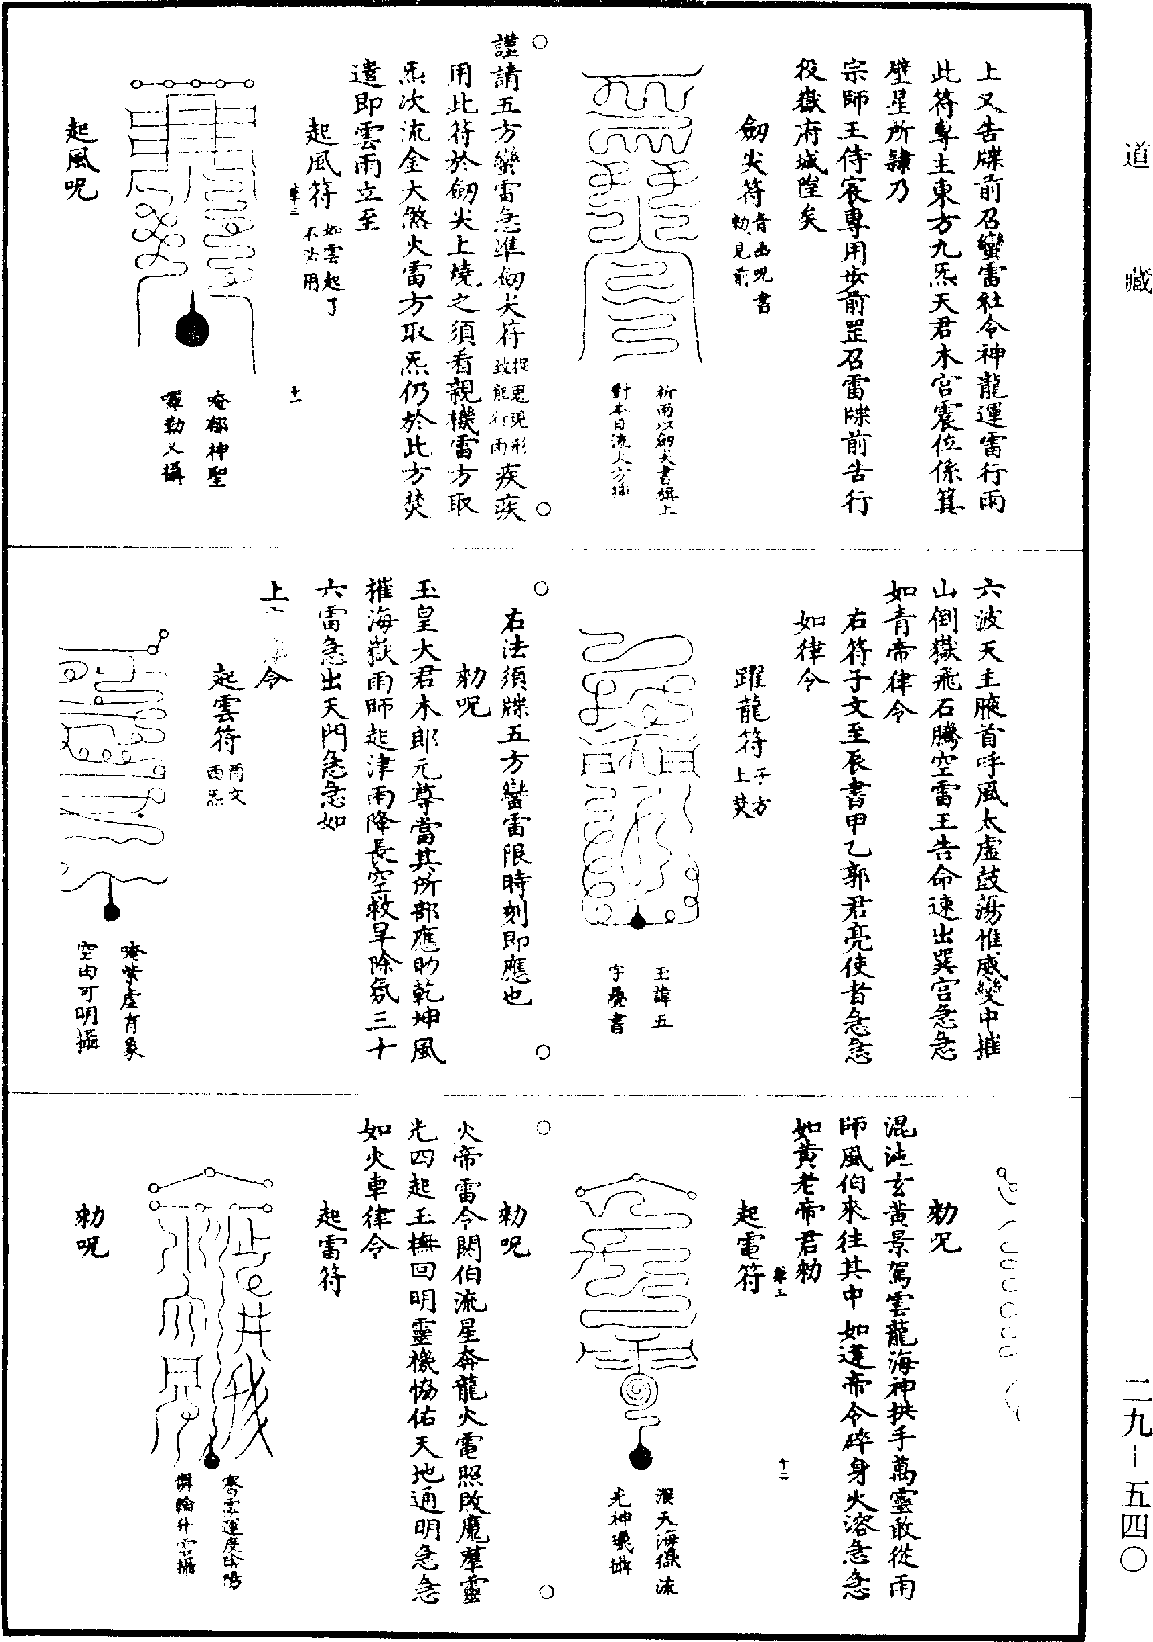 道藏
上又告牒前召蠻雷社令神龍運雷行雨
此符專主東方九炁天君木宮震位係箕
壁星所隸乃
宗師王侍宸專用步前罡召雷牒前告行
役嶽府城隍矣
劒尖符
勑見前
祈雨以劒尖書旗上
謹請五方蠻雷急準劒尖符捉鬼現形致龍行雨疾疾
用此符於劒尖上燒之須看親機雷方取
炁次流金大煞火雷方取炁仍於此方焚
遣即雲雨立至
起風符如雲起了不必用
十一
唵機神聖
囉勒乂攝
起風呪
六波天主腋首呼風太虛鼓蕩惟威變中摧
山倒嶽飛石騰空雷王告命速出巽宮急急
如青帝律令
右符子文至辰書甲乙郭君亮使者急急
如律令
躍龍符子方上焚
玉諱五
字疊書
右法須牒五方蠻雷限時刻即應也
勑呪
玉皇大君木郎元尊當其所部應助乾坤風
摧海嶽雨師起津雨降長空救旱除氛三十
六雷急出天門急急如
上令
起雲符
唵紫虛有象
空由可明攝
勑呪
混沌玄黃景駕雲龍海神拱手萬靈敢從雨
師風伯來往其中如違帝令碎身火溶急急
如黃老帝君勑
起電符
十二
滾天海嶽流
光神機攝
勑呪
火帝雷令閼伯流星奔龍火電照敗魔羣靈
光四起玉撫回明靈機協佑天地通明急急
如火車律令
起雷符
勑呪
二九－五四〇